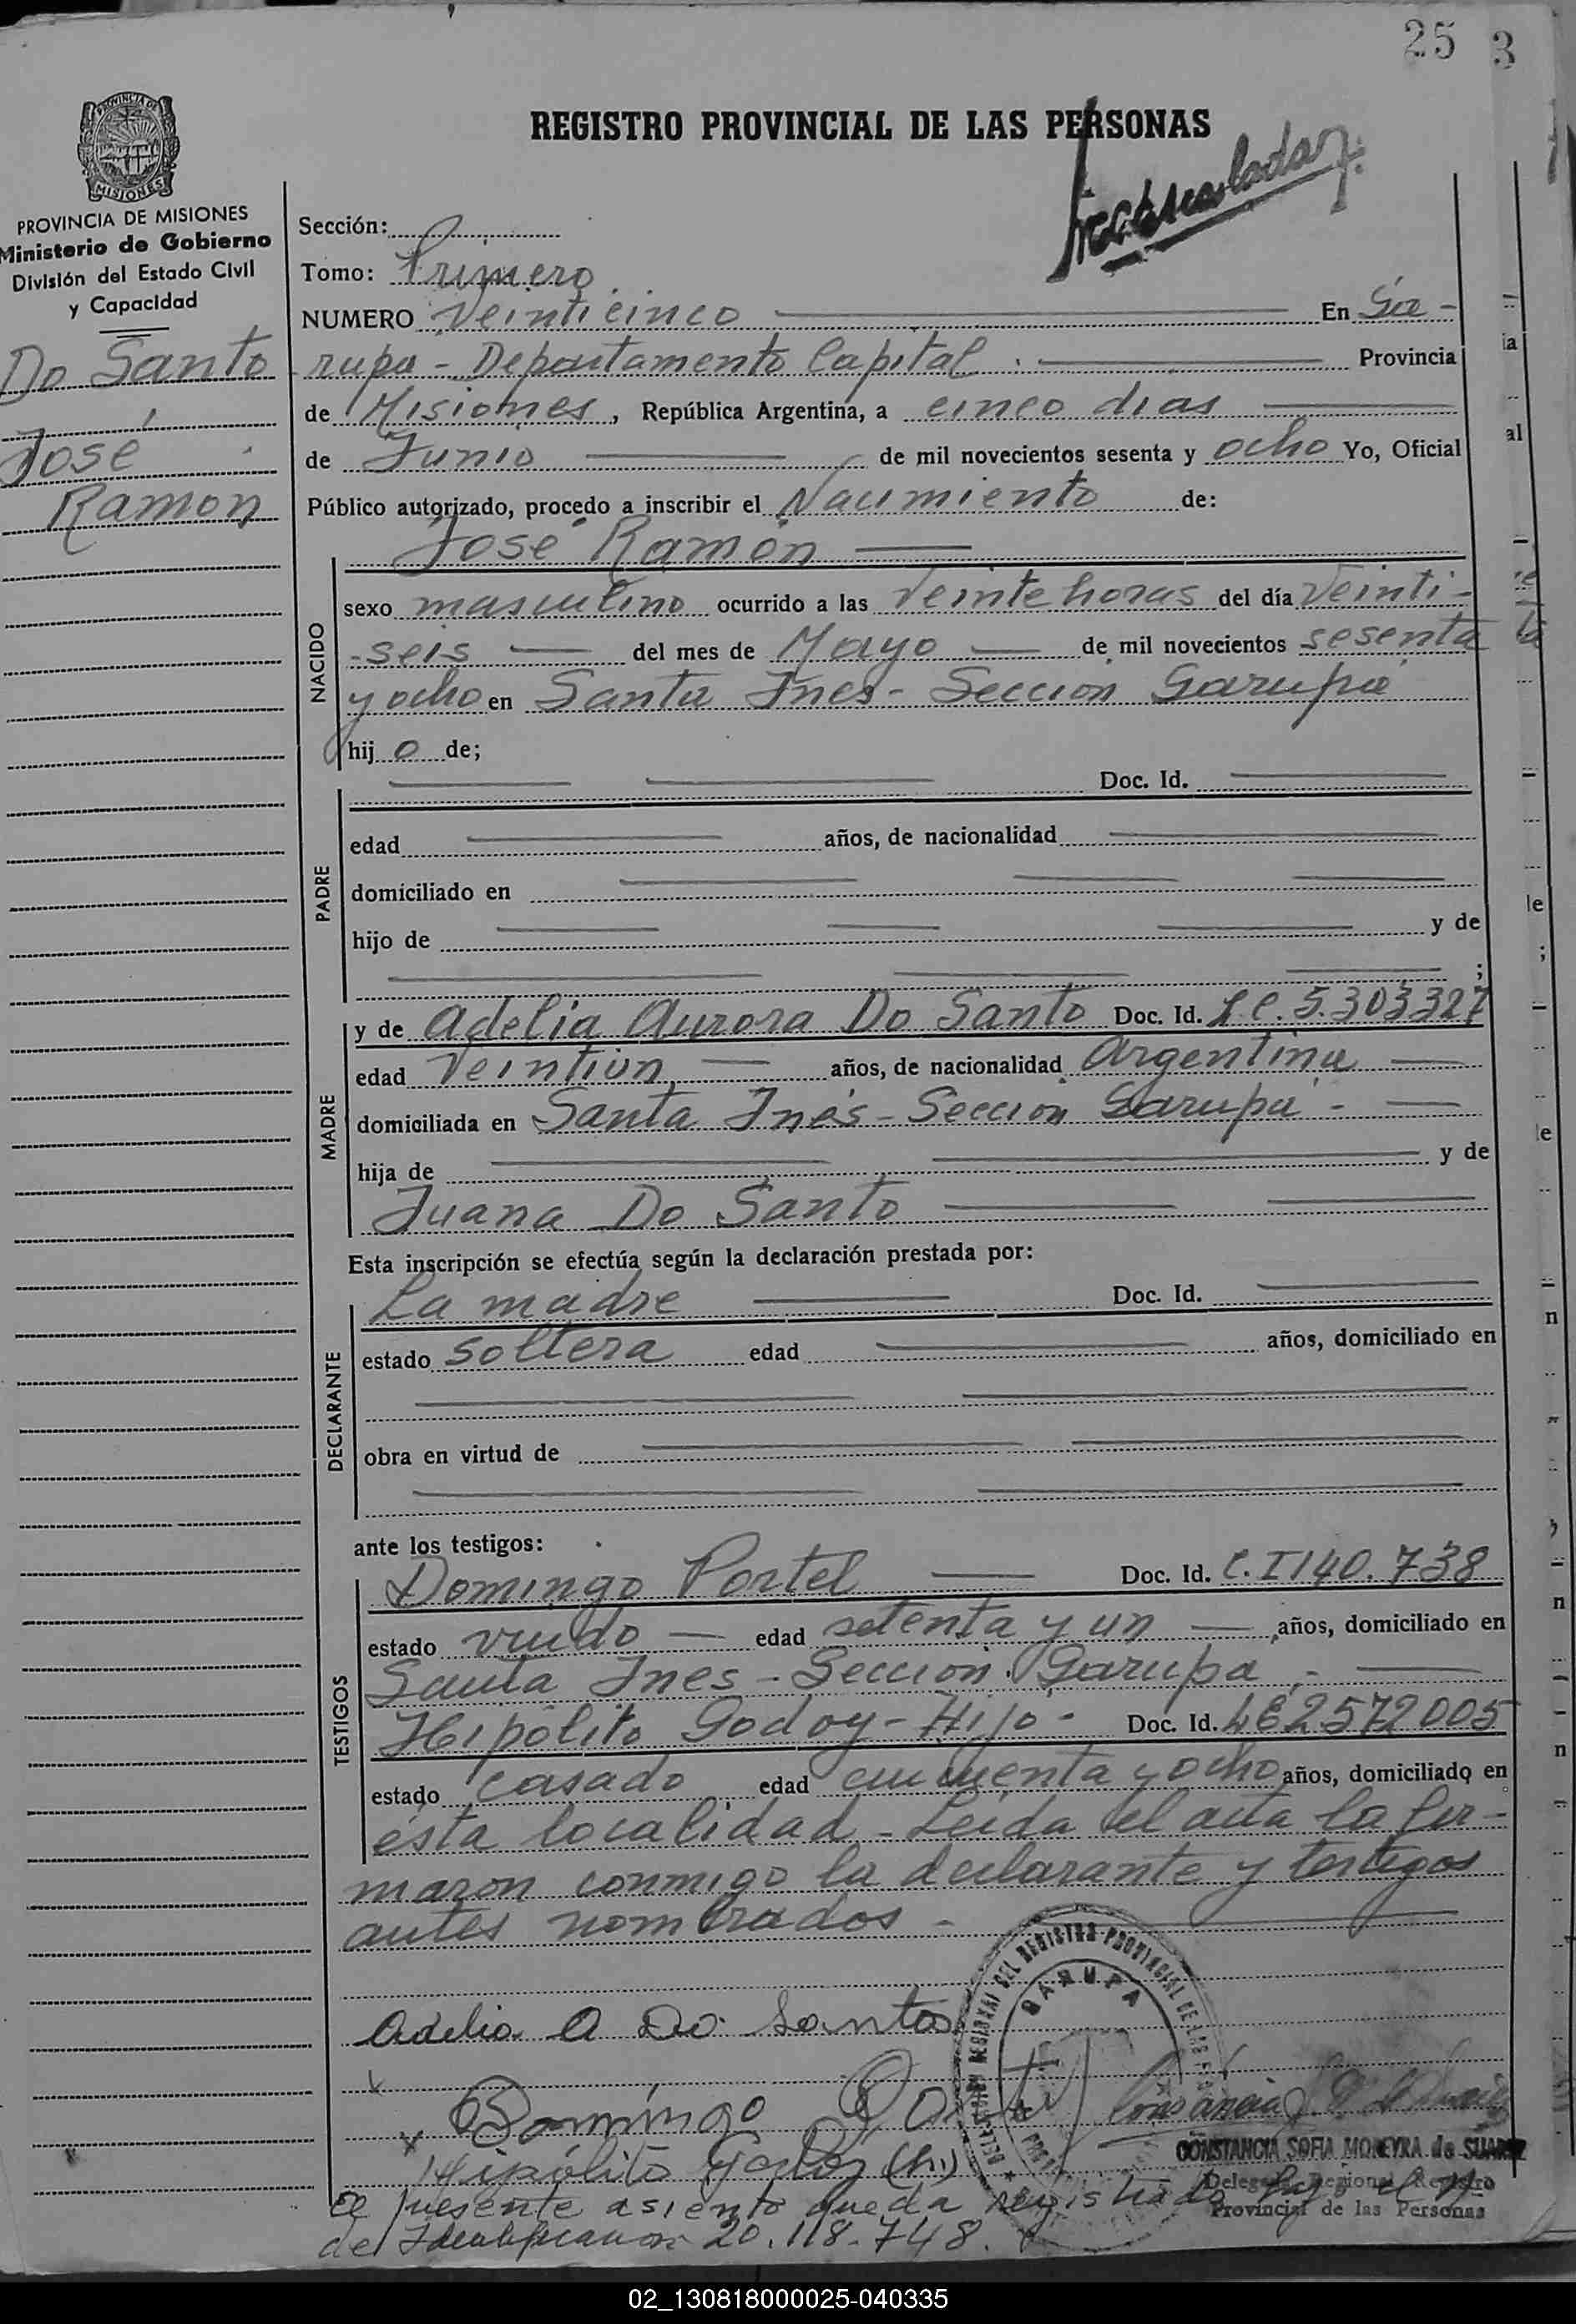 25 3
REGISTRO PROVINCIAL DE LAS PERSONAS
PROVINCIA DE MISIONES
PROVINCIA DE MISIONES
Ministerio de Gobierno
División del Estado Civil
y Capacidad
Do Santo
José
Ramon
Sección:
Tomo: Primero
NUMERO Veinticinco En Ga-
rupa - Departamento Capital. Provincia
de Misiones, República Argentina, a cinco dias
de Junio de mil novecientos sesenta y ocho Yo, Oficial
Público autorizado, procedo a inscribir el Nacimiento de:
José Ramón
NACIDO
sexo masculino ocurrido a las Veinte horas del día Veinti-
-seis del mes de Mayo de mil novecientos sesenta
y ocho en Santa Ines - Seccion Garupa
hij o de;
PADRE
Doc. Id.
edad años, de nacionalidad
domiciliado en
hijo de y de
;
MADRE
y de Adelia Aurora Do Santo Doc. Id. L.C. 5.303327
edad Veintiún años, de nacionalidad Argentina
domiciliada en Santa Inés - Seccion Garupa -
hija de y de
Juana Do Santo
Esta inscripción se efectúa según la declaración prestada por:
DECLARANTE
La madre Doc. Id.
estado soltera edad años, domiciliado en
obra en virtud de
ante los testigos:
TESTIGOS
Domingo Portel Doc. Id. C.I 140.738
estado viudo edad setenta y un años, domiciliado en
Santa Ines - Seccion Garupa -
Hipólito Godoy - Hijo - Doc. Id. LE 2572005
estado casado edad cincuenta y ocho años, domiciliado en
ésta localidad - Leida el acta la fir-
maron conmigo la declarante y testigos
antes nombrados -
Adelia A Do Santos
DELEGACION REGIONAL DEL REGISTRO PROVINCIAL DE LAS
GARUPA
Domingo
Hipólito Godoy (hi)
CONSTANCIA SOFIA MOREYRA de SUAREZ
Delegada Regional Registro
Provincial de las Personas
El presente asiento queda registrado bajo el Nº
de Identificacion 20.118.748.
02_130818000025-040335